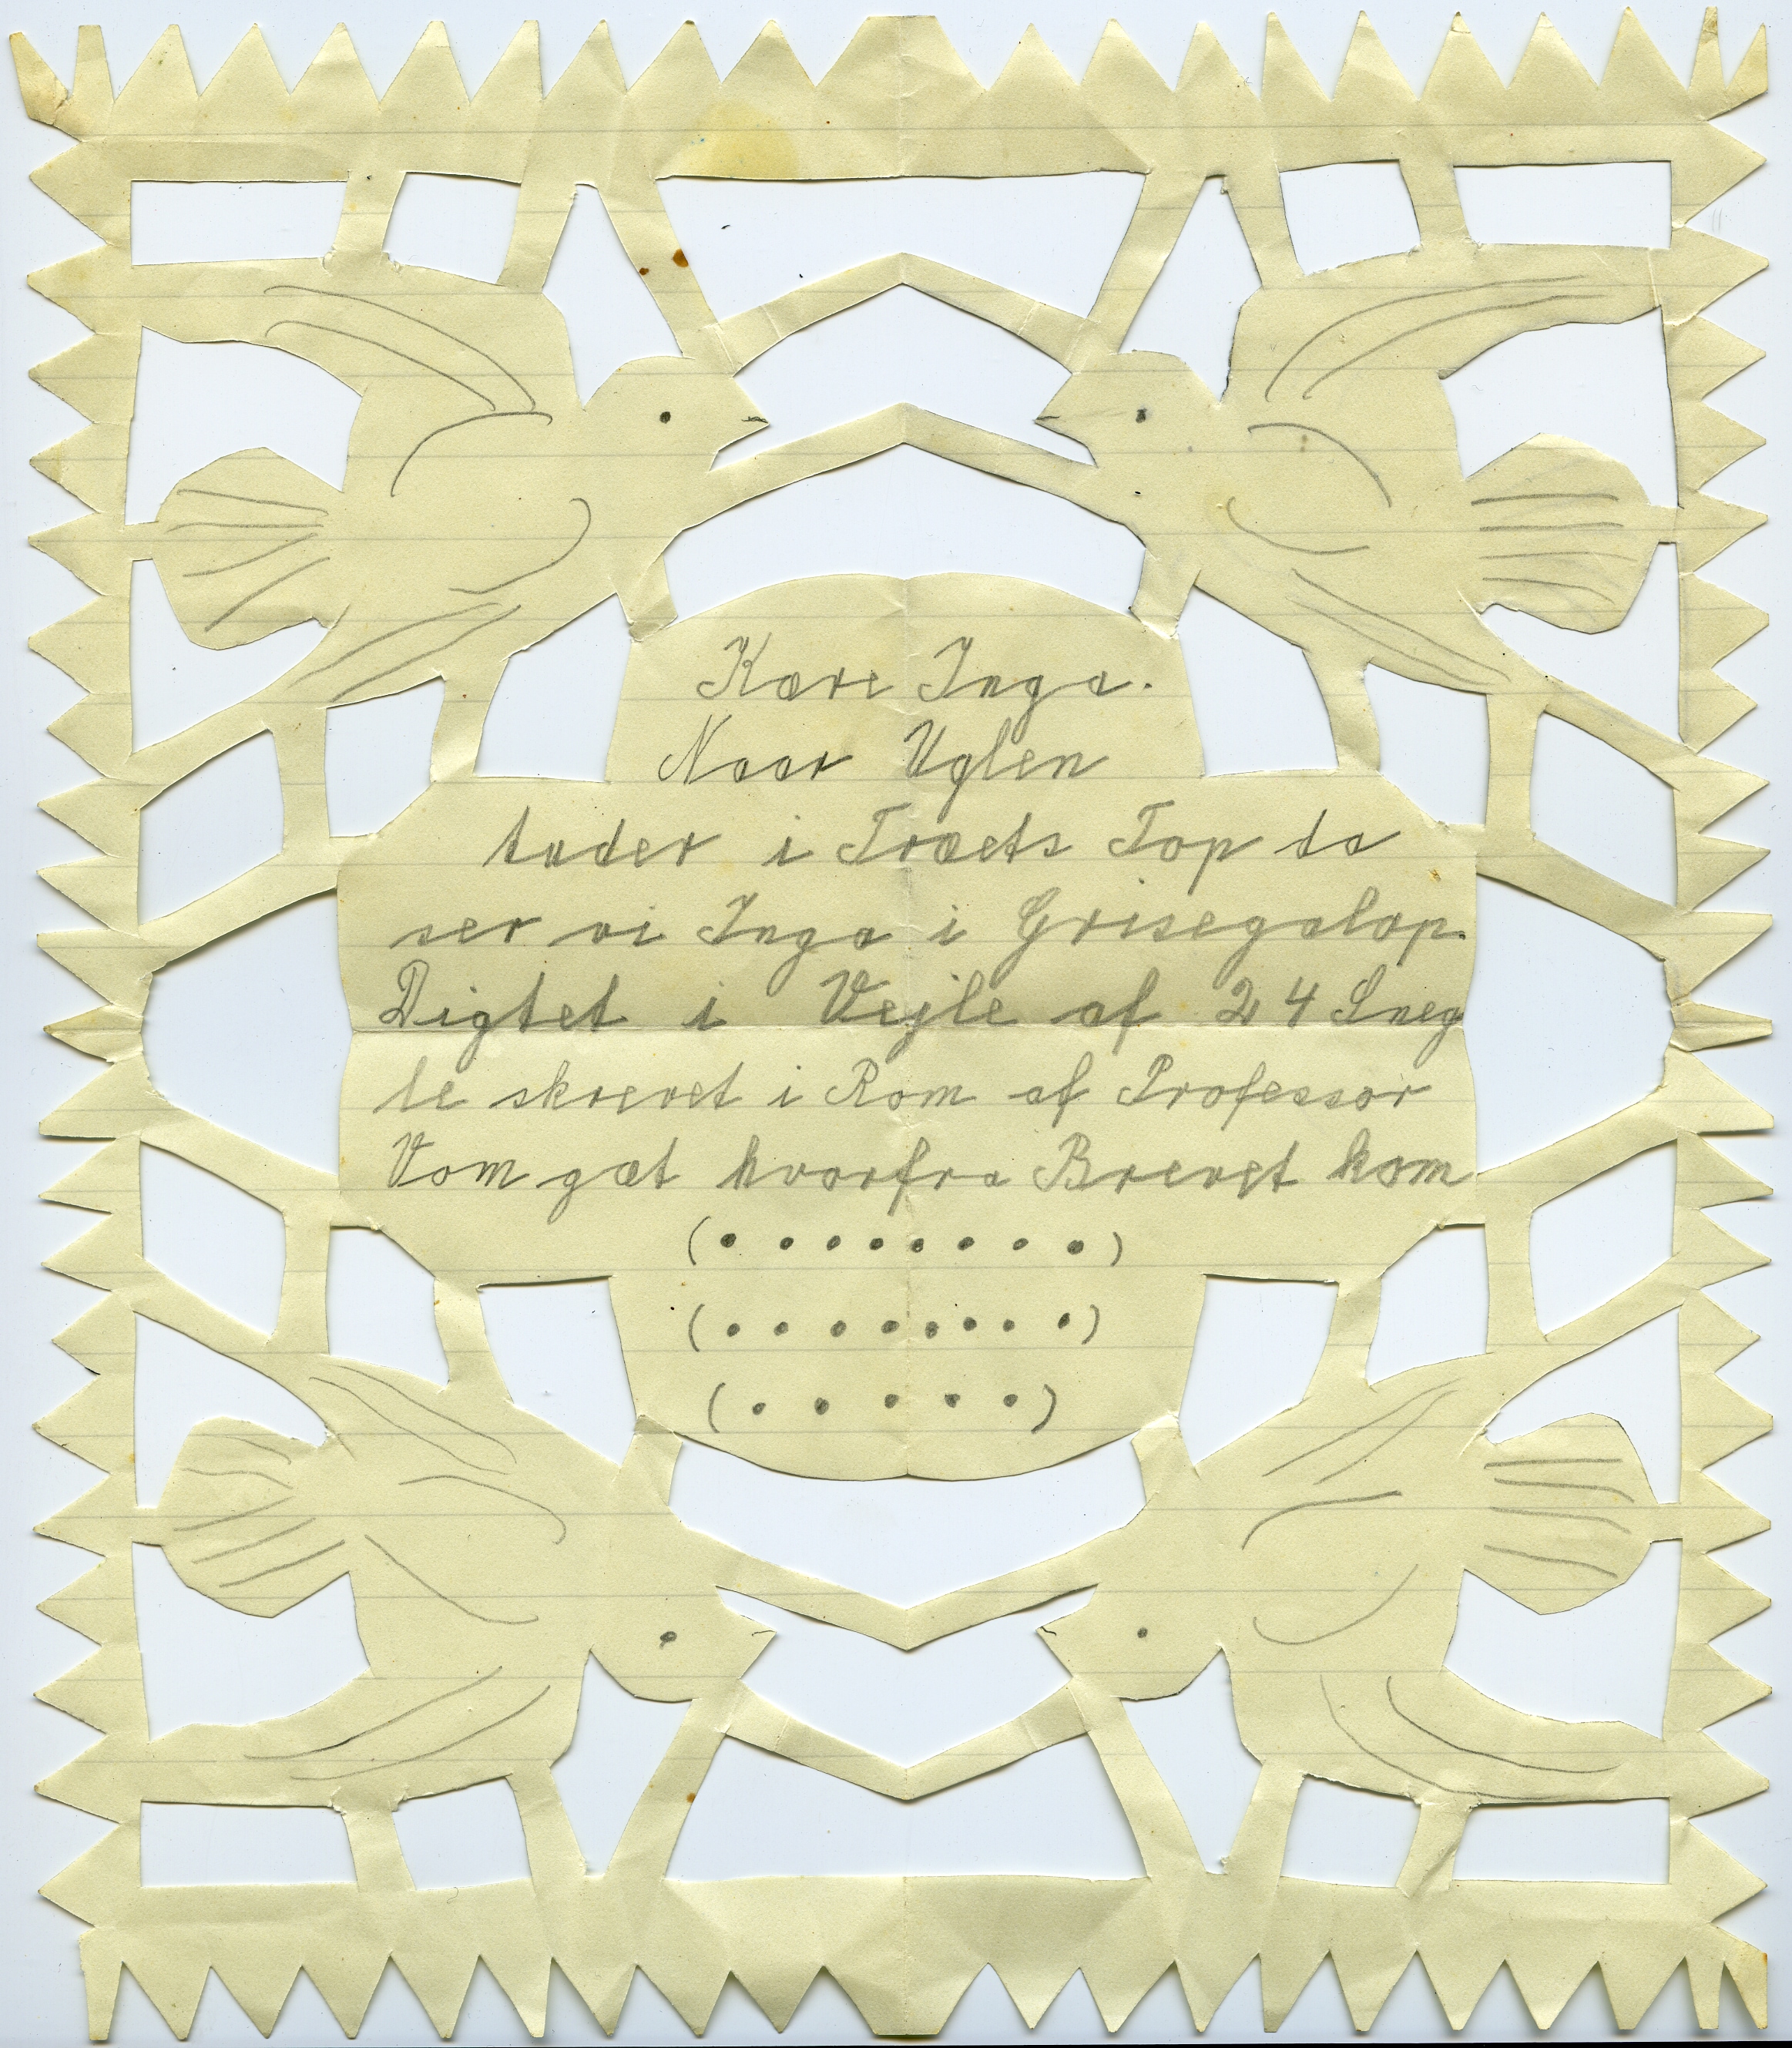 Kære Inga.
Naar Uglen
tuder i Træets Top da
ser vi Inga i Grisegalop.
Digtet i Vejle af 24 Sneg
le skrevet i Rom af Professor
Vom gæt hvorfra Brevet kom
(• • • • • • • •)
(• • • • • • • •)
(• • • • •)